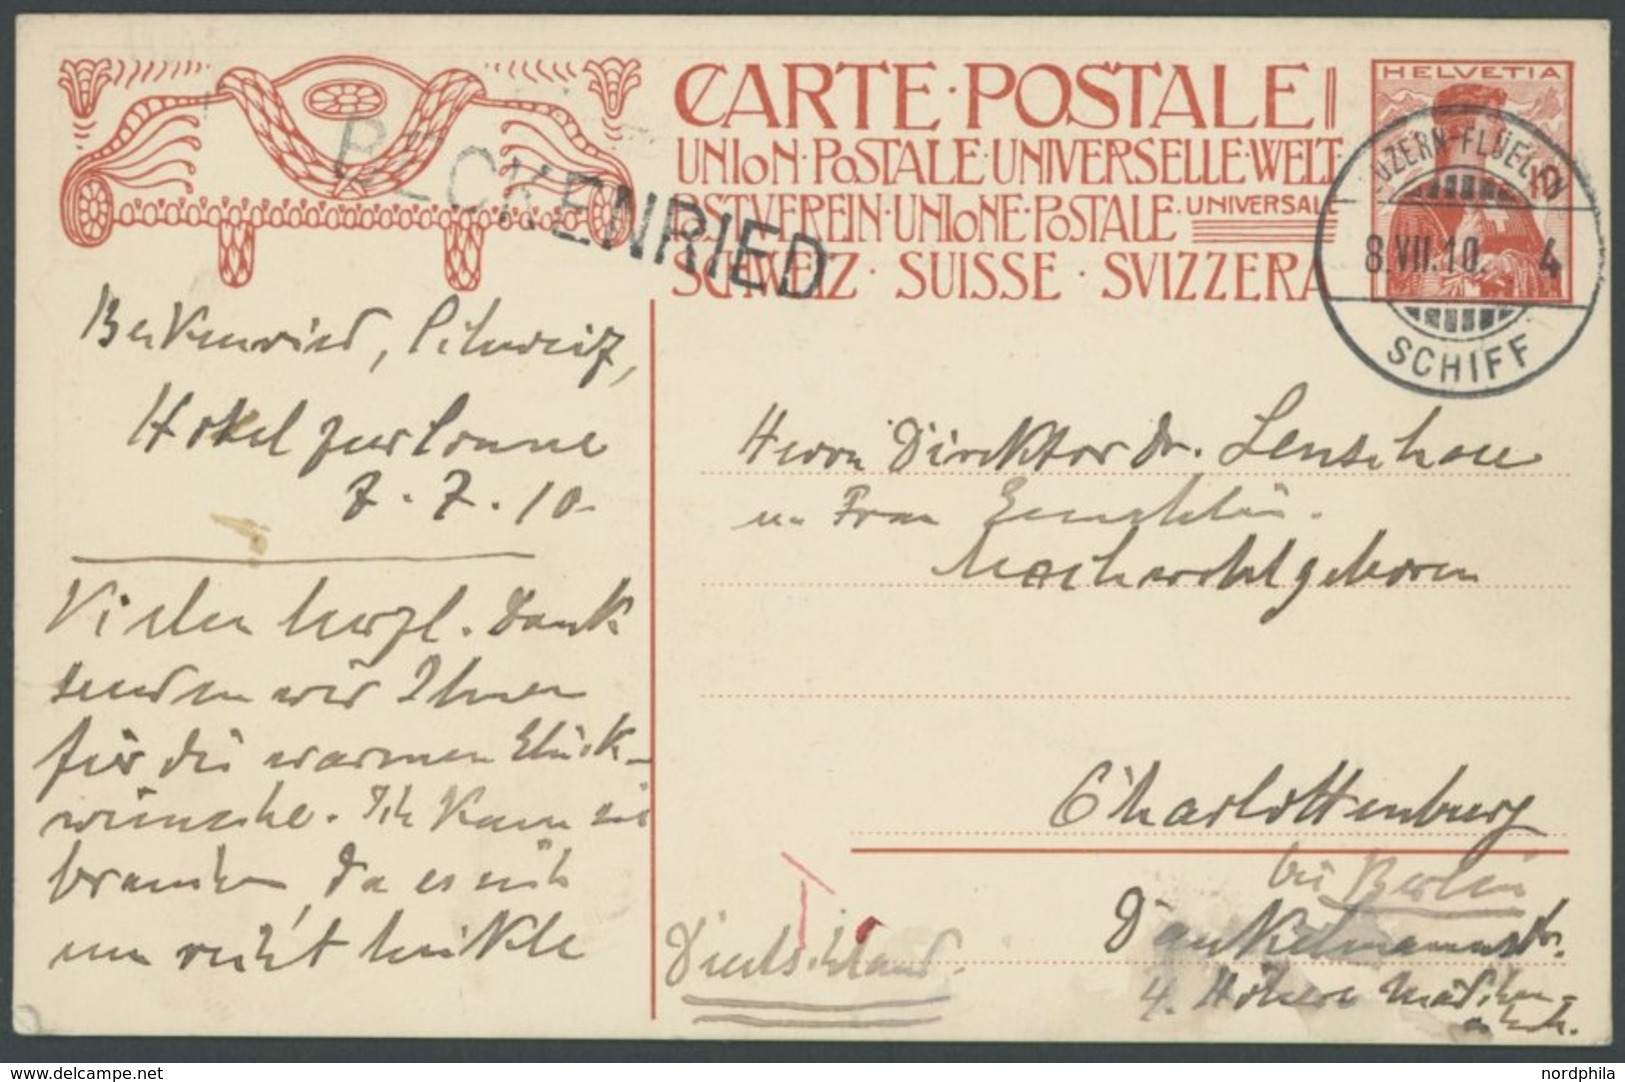 CARTE·POSTALE
UNION·POSTALE·UNIVERSELLE·WELT
POSTVEREIN·UNIONE·POSTALE·UNIVERSALE
SCHWEIZ · SUISSE · SVIZZERA
HELVETIA
LUZERN-FLÜELEN
8.VII.10. 4
SCHIFF
BECKENRIED
Beckenried, Schweiz,
Hotel zur Sonne
7.7.10.
Vielen herzl. Dank
senden wir Ihnen
für die warmen Glück-
wünsche. Ich kann sie
brauchen, da es mir
um recht
Herrn Direktor Dr. Lenschau
u. Frau Gemahlin.
Hochwohlgeboren
Charlottenburg
bei Berlin
Dankelmannstr.
4. Höhere Mädchen-
Deutschland.
delcampe.net
nordphila